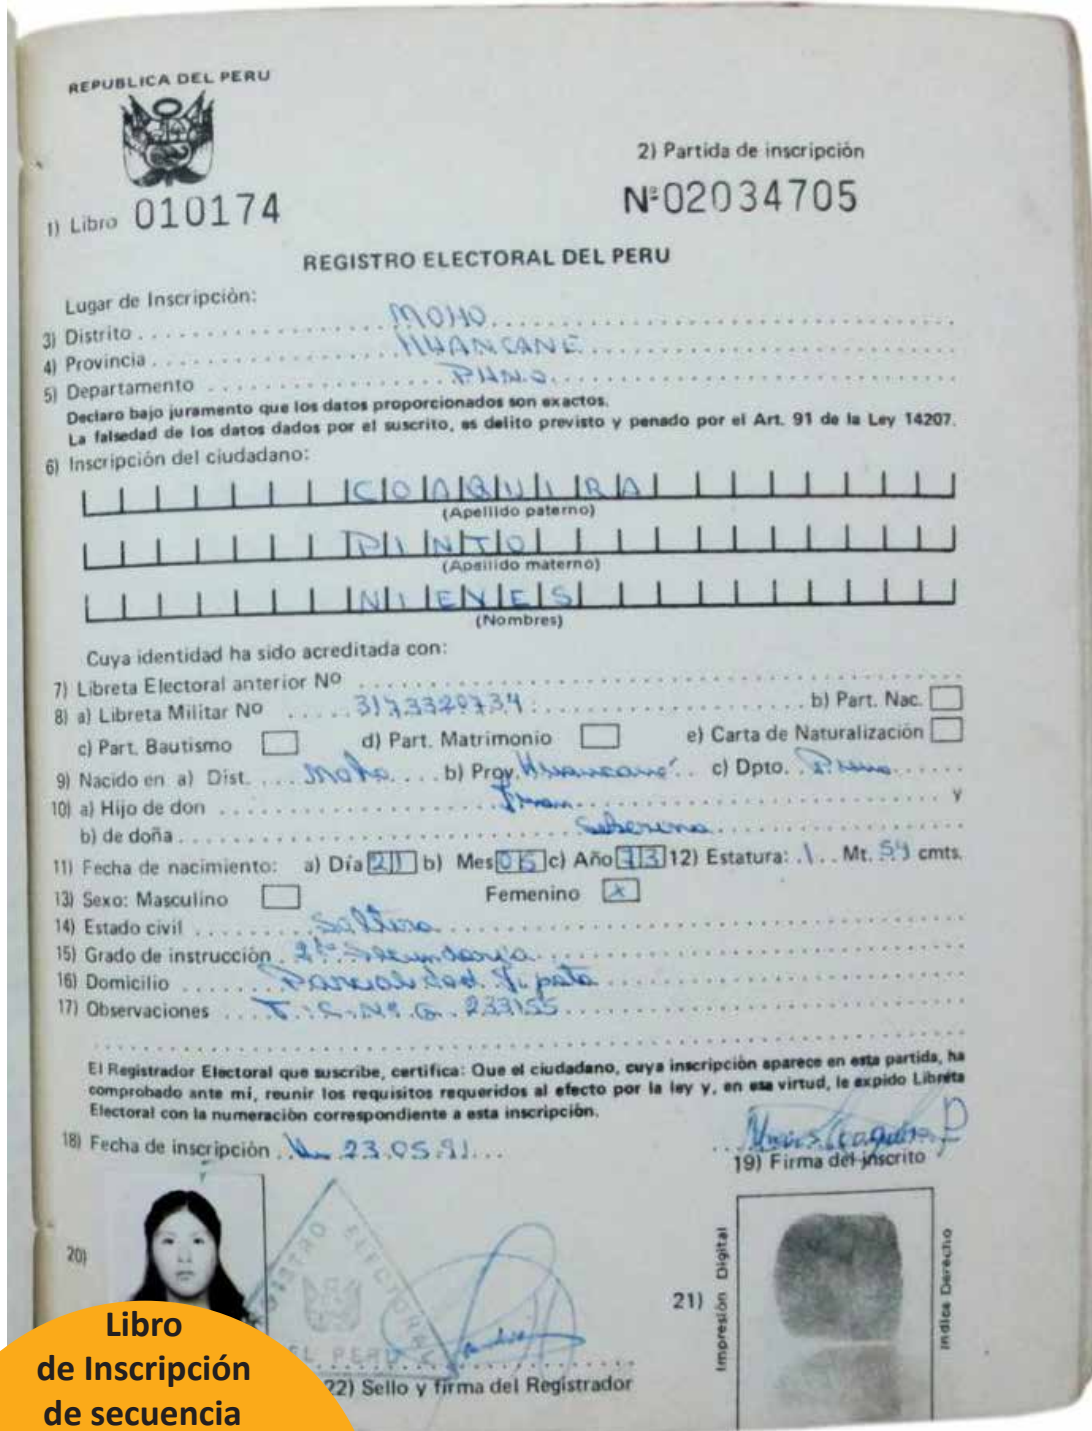 REPUBLICA DEL PERU
2) Partida de inscripción
1) Libro 010174
Nº 02034705
REGISTRO ELECTORAL DEL PERU
Lugar de Inscripción:
3) Distrito MOHO
4) Provincia HUANCANE
5) Departamento PUNO
Declaro bajo juramento que los datos proporcionados son exactos.
La falsedad de los datos dados por el suscrito, es delito previsto y penado por el Art. 91 de la Ley 14207.
6) Inscripción del ciudadano:
COAQUIRA
(Apellido paterno)
PINTO
(Apellido materno)
NIEVES
(Nombres)
Cuya identidad ha sido acreditada con:
7) Libreta Electoral anterior Nº
8) a) Libreta Militar Nº 3173320734 b) Part. Nac.
c) Part. Bautismo d) Part. Matrimonio e) Carta de Naturalización
9) Nacido en a) Dist. Moho b) Prov. Huancané c) Dpto. Puno
10) a) Hijo de don Juan y
b) de doña Seberina
11) Fecha de nacimiento: a) Día 21 b) Mes 05 c) Año 73 12) Estatura: 1 Mt. 54 cmts.
13) Sexo: Masculino Femenino X
14) Estado civil Soltera
15) Grado de instrucción 2do Secundaria
16) Domicilio Parcialidad
17) Observaciones 233155
El Registrador Electoral que suscribe, certifica: Que el ciudadano, cuya inscripción aparece en esta partida, ha
comprobado ante mí, reunir los requisitos requeridos al efecto por la ley y, en esa virtud, le expido Libreta
Electoral con la numeración correspondiente a esta inscripción.
18) Fecha de inscripción 23.05.91
Nieves Coaquira P
19) Firma del inscrito
20)
REGISTRO ELECTORAL
DEL PERU
22) Sello y firma del Registrador
21) Impresión Digital
Indice Derecho
Libro
de Inscripción
de secuencia